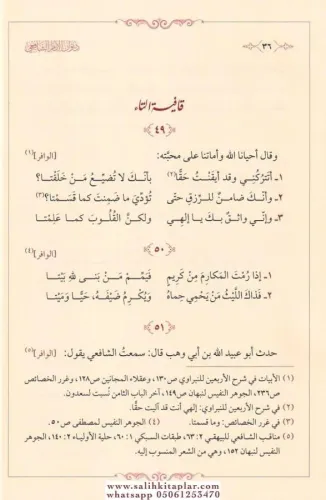 ﴿٣٦﴾ ديوان الإمام الشافعي
قافية التاء
﴿٤٩﴾
وقال أحيانا الله وأماتنا على محبته: [الوافر](١)
١- أتتركني وقد أيقنت حقًّا(٢) بأنك لا تضيع من خلقتا؟
٢- وأنك ضامن للرزق حتى تؤدي ما ضمنت كما قسمتا؟(٣)
٣- وإني واثق بك يا إلهي ولكن القلوب كما علمتا
﴿٥٠﴾
[الوافر](٤)
١- إذا رمت المكارم من كريم فيمم من بنى لله بيتا
٢- فذاك الليث من يحمي حماه ويكرم ضيفه، حيا وميتا
﴿٥١﴾
حدث أبو عبيد الله بن أبي وهب قال: سمعت الشافعي يقول: [الوافر](٥)
(١) الأبيات في شرح الأربعين للنبراوي ص١٣٠، وعقلاء المجانين ص١٢٨، وغرر الخصائص
ص٢٣٦، الجوهر النفيس لنبهان ص١٤٩، آخر الباب الثامن نسبت لسعدون.
(٢) في شرح الأربعين للنبراوي: إلهي أنت قد آليت حقًّا.
(٣) في غرر الخصائص: وما قسمتا. (٤) الجوهر النفيس لمصطفى ص٥٠.
(٥) مناقب الشافعي للبيهقي ٦٣:٢، طبقات السبكي ٦٠:١، حلية الأولياء ١٤٠:٢، الجوهر
النفيس لنبهان ١٥٢، وهي من الشعر المنسوب إليه.
www.salihkitaplar.com
whatsapp 05061253470